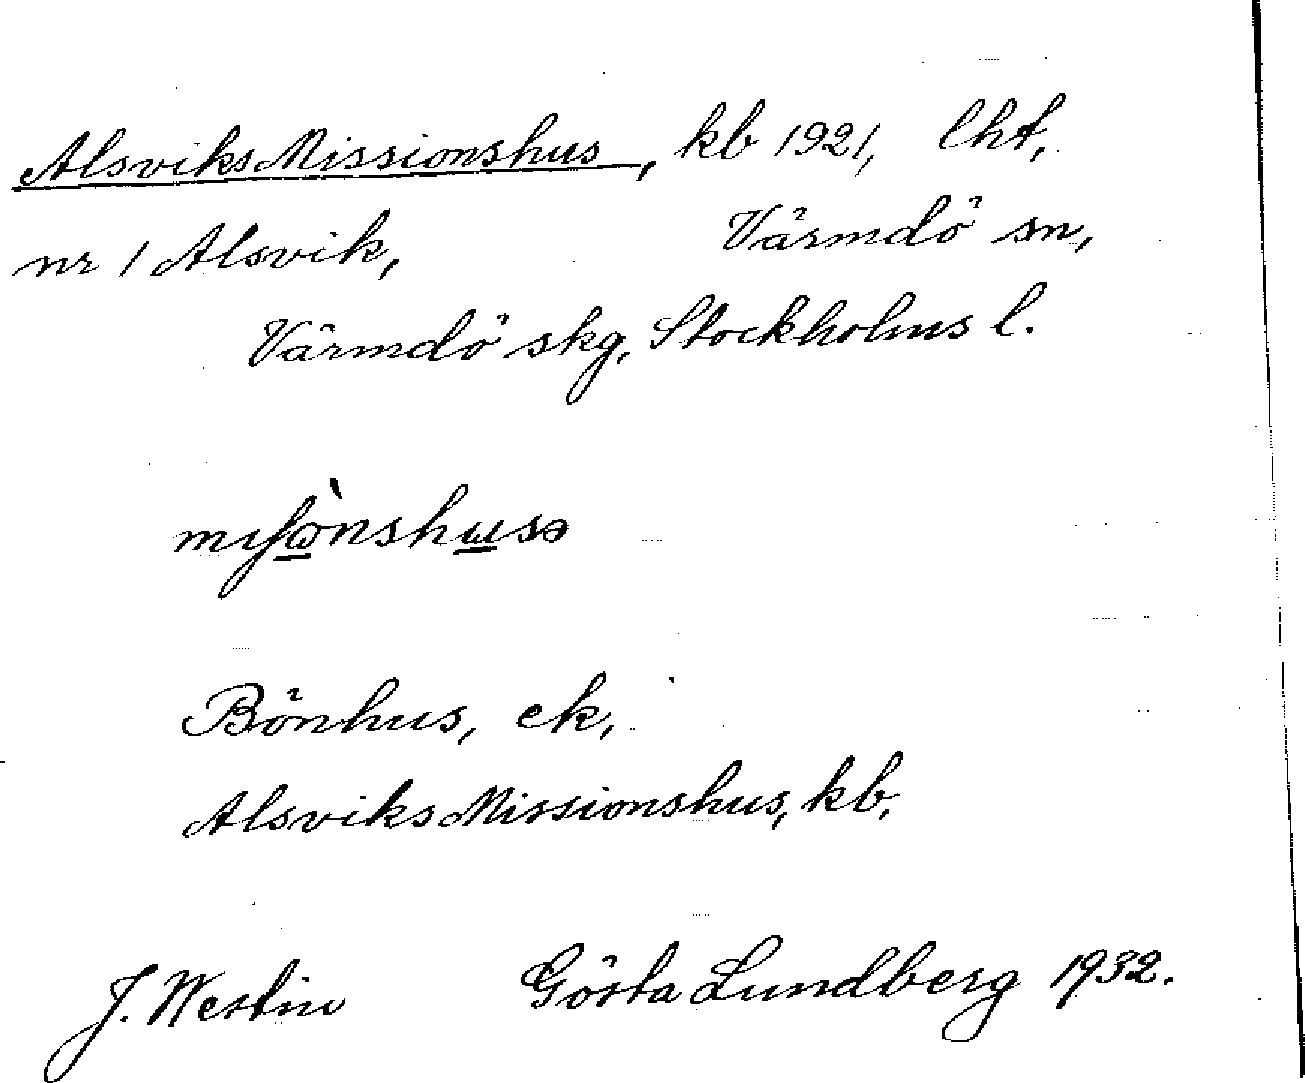 Alsviks Missionshus, kb 1921, lht,
nr 1 Alsvik, Värmdö sn,
Värmdö skg, Stockholms l.
mıʃὼ̲nshɯ̲sə
Bönhus, ek,
Alsviks Missionshus, kb,
J. Westin Gösta Lundberg 1932.